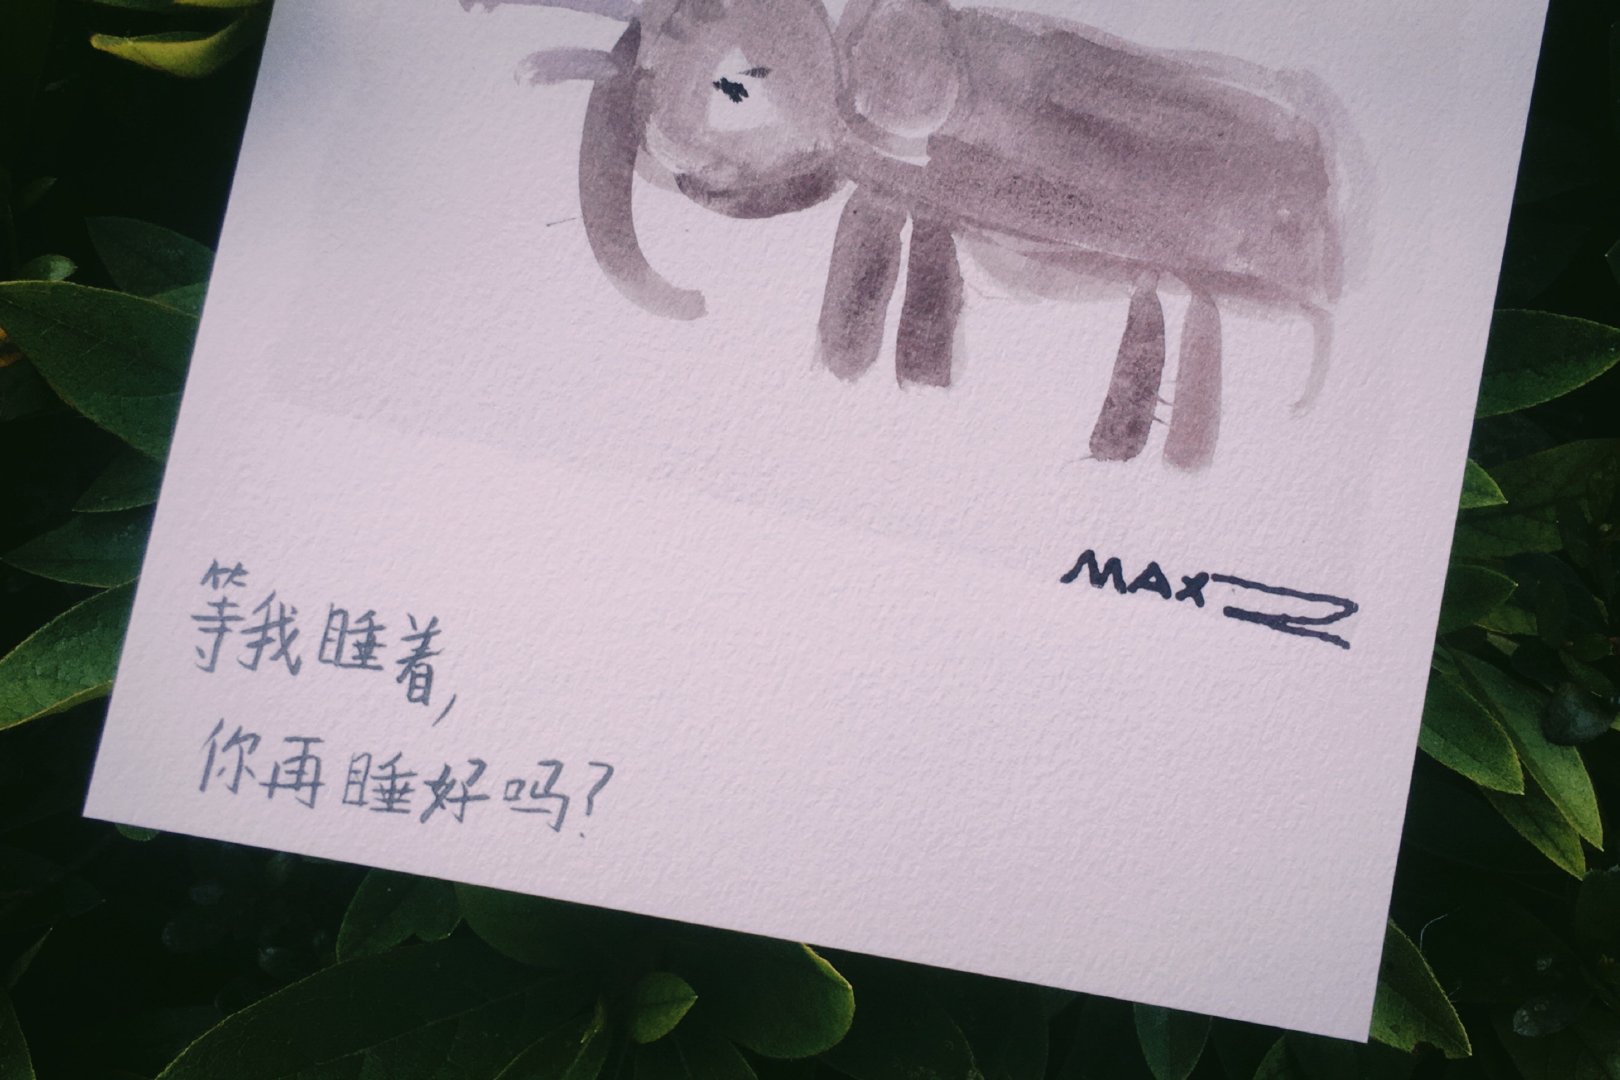 MAX
等我睡着,
你再睡好吗?